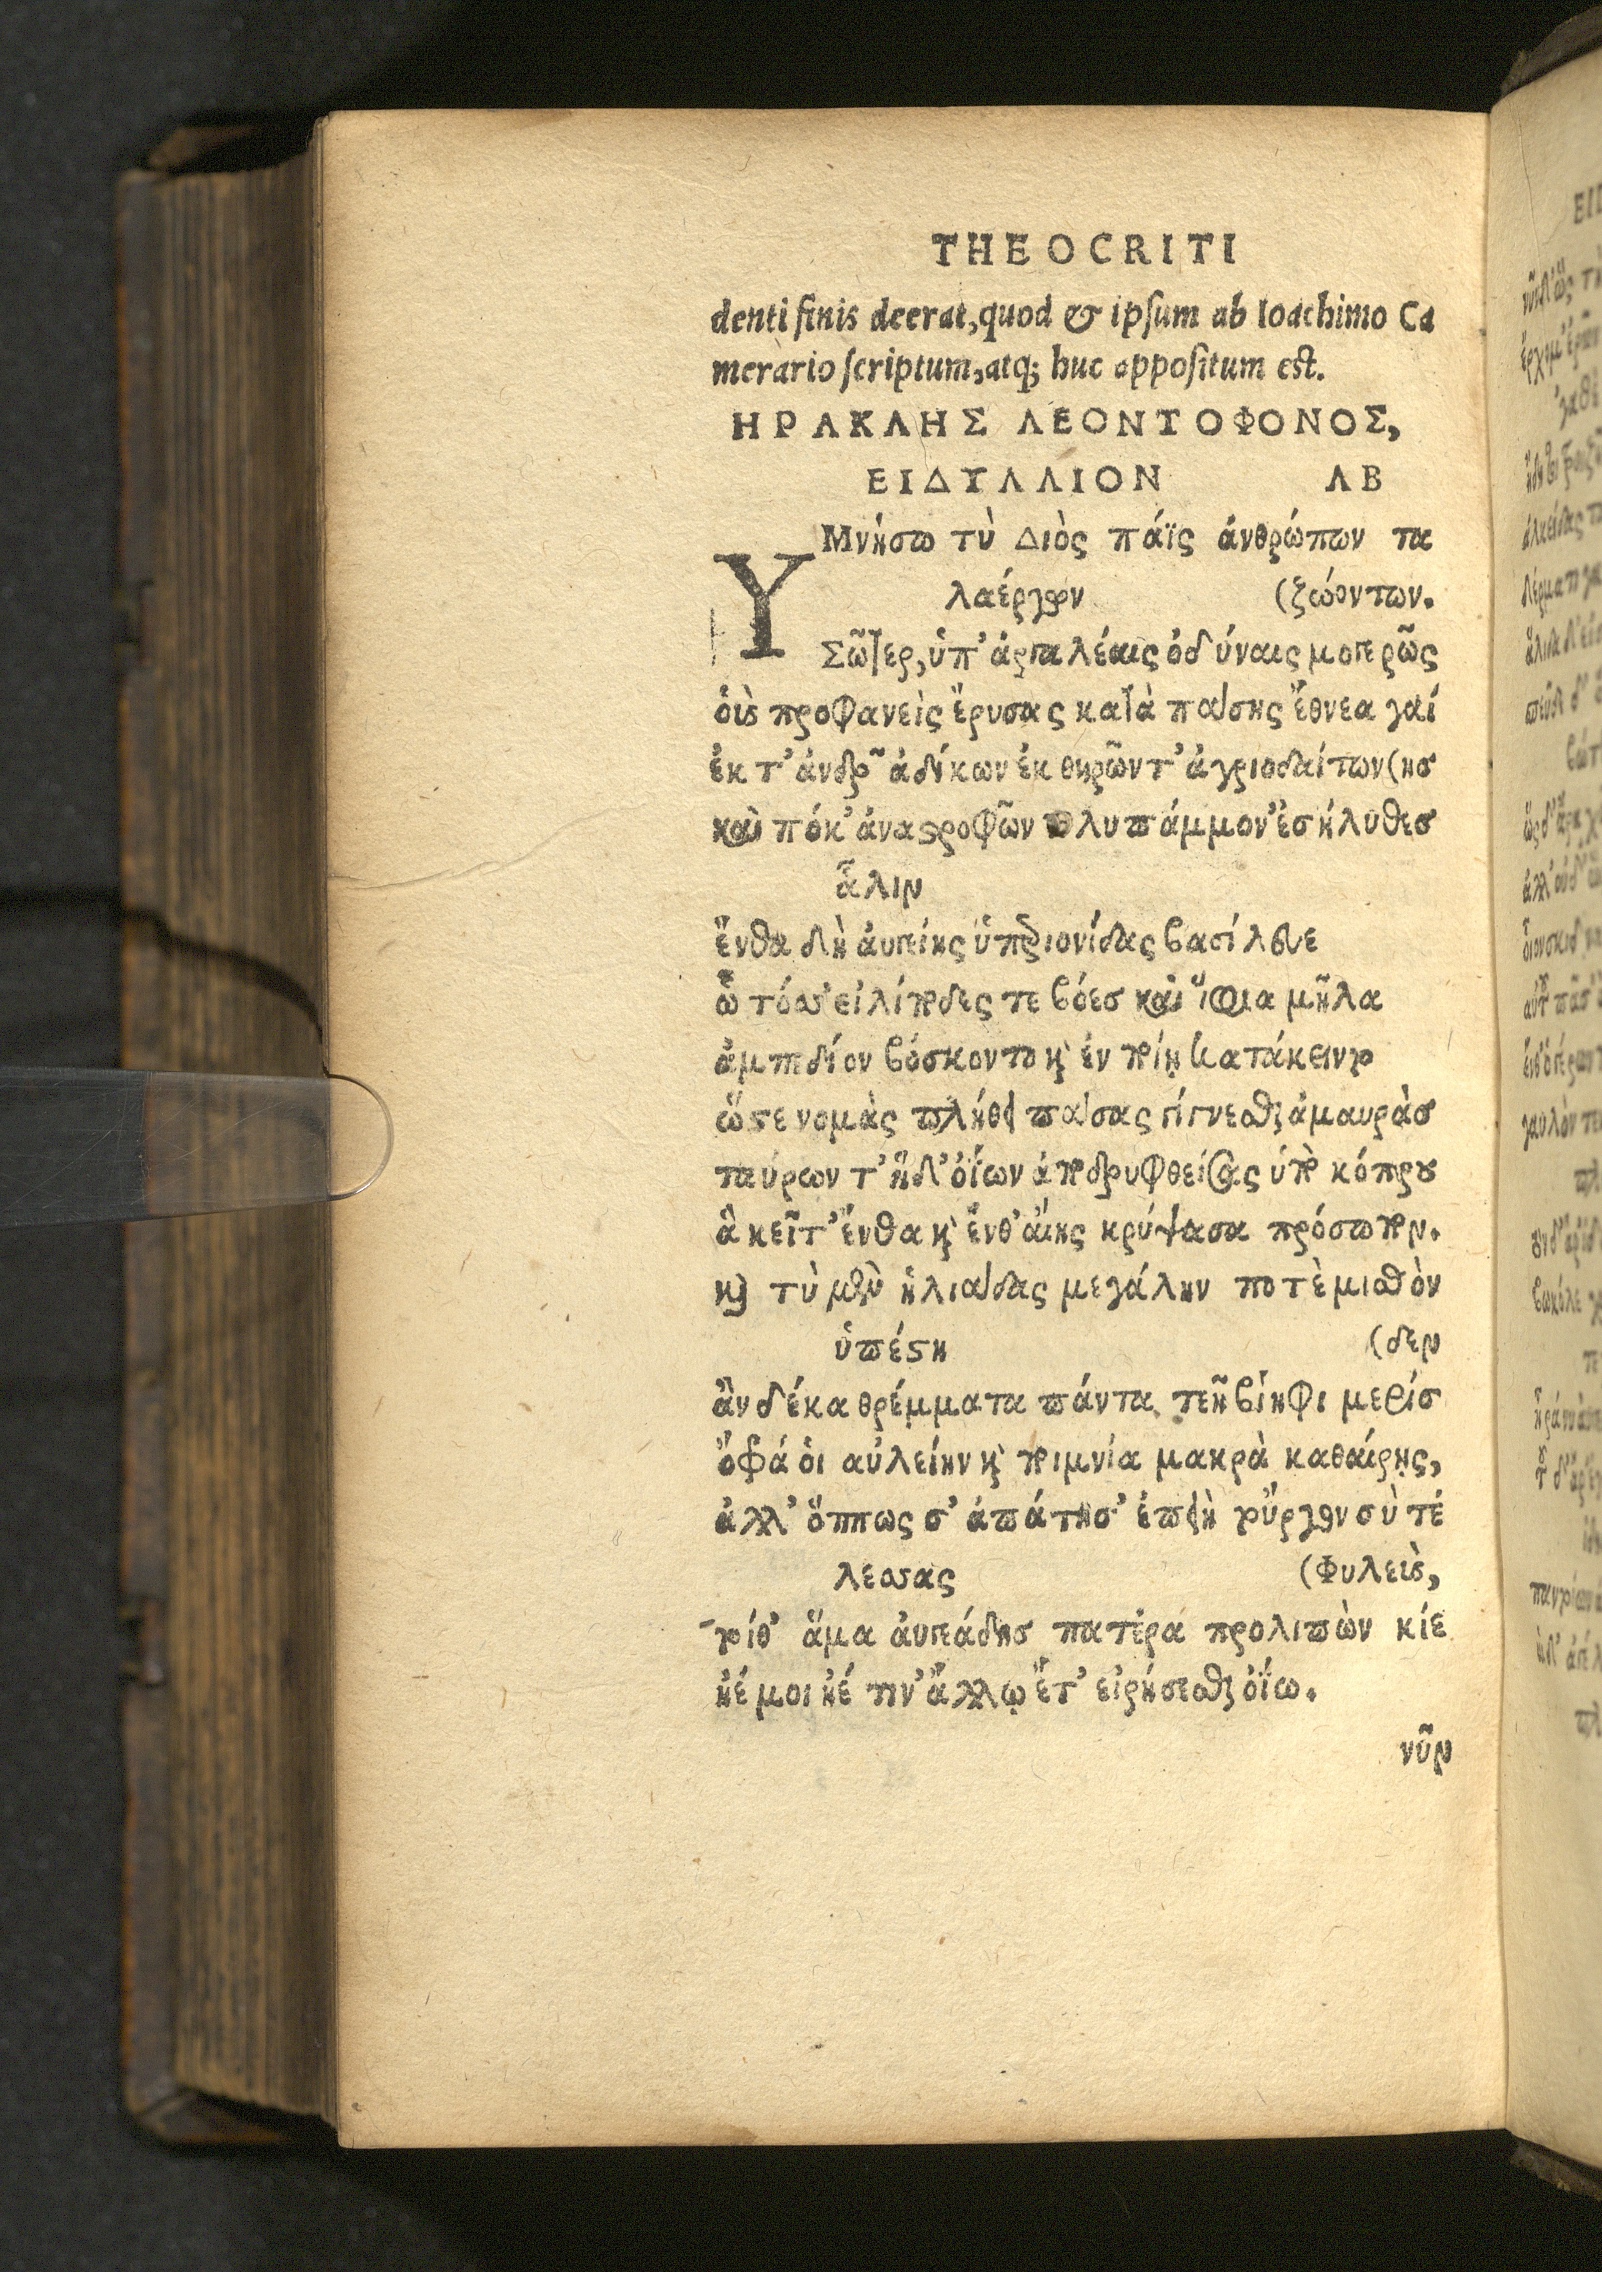 THEOCRITI
denti finis deerat, quod & ipsum ab Ioachimo Ca
merario scriptum, atq; huc appositum est.
ΗΡΑΚΛΗΣ ΛΕΟΝΤΟΦΟΝΟΣ,
ΕΙΔΥΛΛΙΟΝ ΛΒ
ΥΜνήσω τὺ Διὸς πάϊς ἀνθρώπων τα
λαέργων (ζωόντων.
Σῶτερ, ὑπ' ἀργαλέαις ὀδύναις μογερῶς
οὓς προφανεὶς ἔρυσας κατὰ πάσης ἔθνεα γαί
ἐκ τ' ἀνδρῶν ἀδίκων ἐκ θηρῶν τ' ἀγριοδαίτων (ησ
καὶ πόκ' ἀναστροφῶν πολυπάμμον' ἐσήλυθεσ
ἆλιν
ἔνθα δὴ ἀυγείης ὑπεριονίδας βασίλευε
ᾧ τόσσ' εἰλίποδες τε βόεσ καὶ ἴφια μῆλα
ἀμπεδίον βόσκοντο καὶ ἐν ποίῃ κατάκειντο
ὥστε νομὰς πλήθει πάσας γίγνεσθαι ἀμαυρὰσ
ταύρων τ' ἠδ' ὀΐων ἀποδρυφθείσας ὑπὸ κόπρου
ἃ κεῖτ' ἔνθα καὶ ἔνθ' αἴης κρύψασα πρόσωπον.
καὶ τὺ μὲν ἡλιάδας μεγάλην ποτὲ μισθὸν
ὑπέστη (δεν
ἂν δέκα θρέμματα πάντα τεῆ βίηφι μερίσ
ὄφρά οἱ αὐλείην καὶ ποιμνία μακρὰ καθαίρῃς,
ἀλλ' ὅππως σ' ἀπάτησ' ἐπειδὴ τοὔργον σὺ τέ
λεσσας (Φυλεὺς,
τοίθ' ἅμα ἀυγεάδησ πατέρα προλιπὼν κίε
ἠέ μοι ἠέ τιν' ἄλλῳ ἔτ' εἰρήσεσθαι ὀΐω.
νῦν